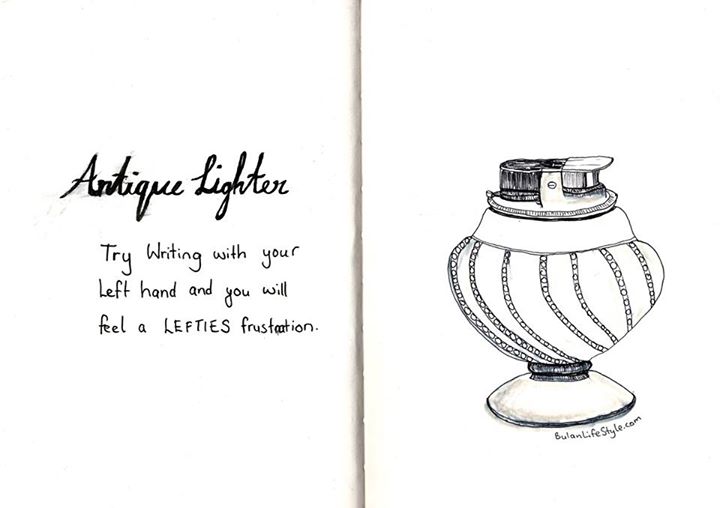 Antique Lighter
Try Writing with your
Left hand and you will
feel a LEFTIES frustration.
BulanLifeStyle.com